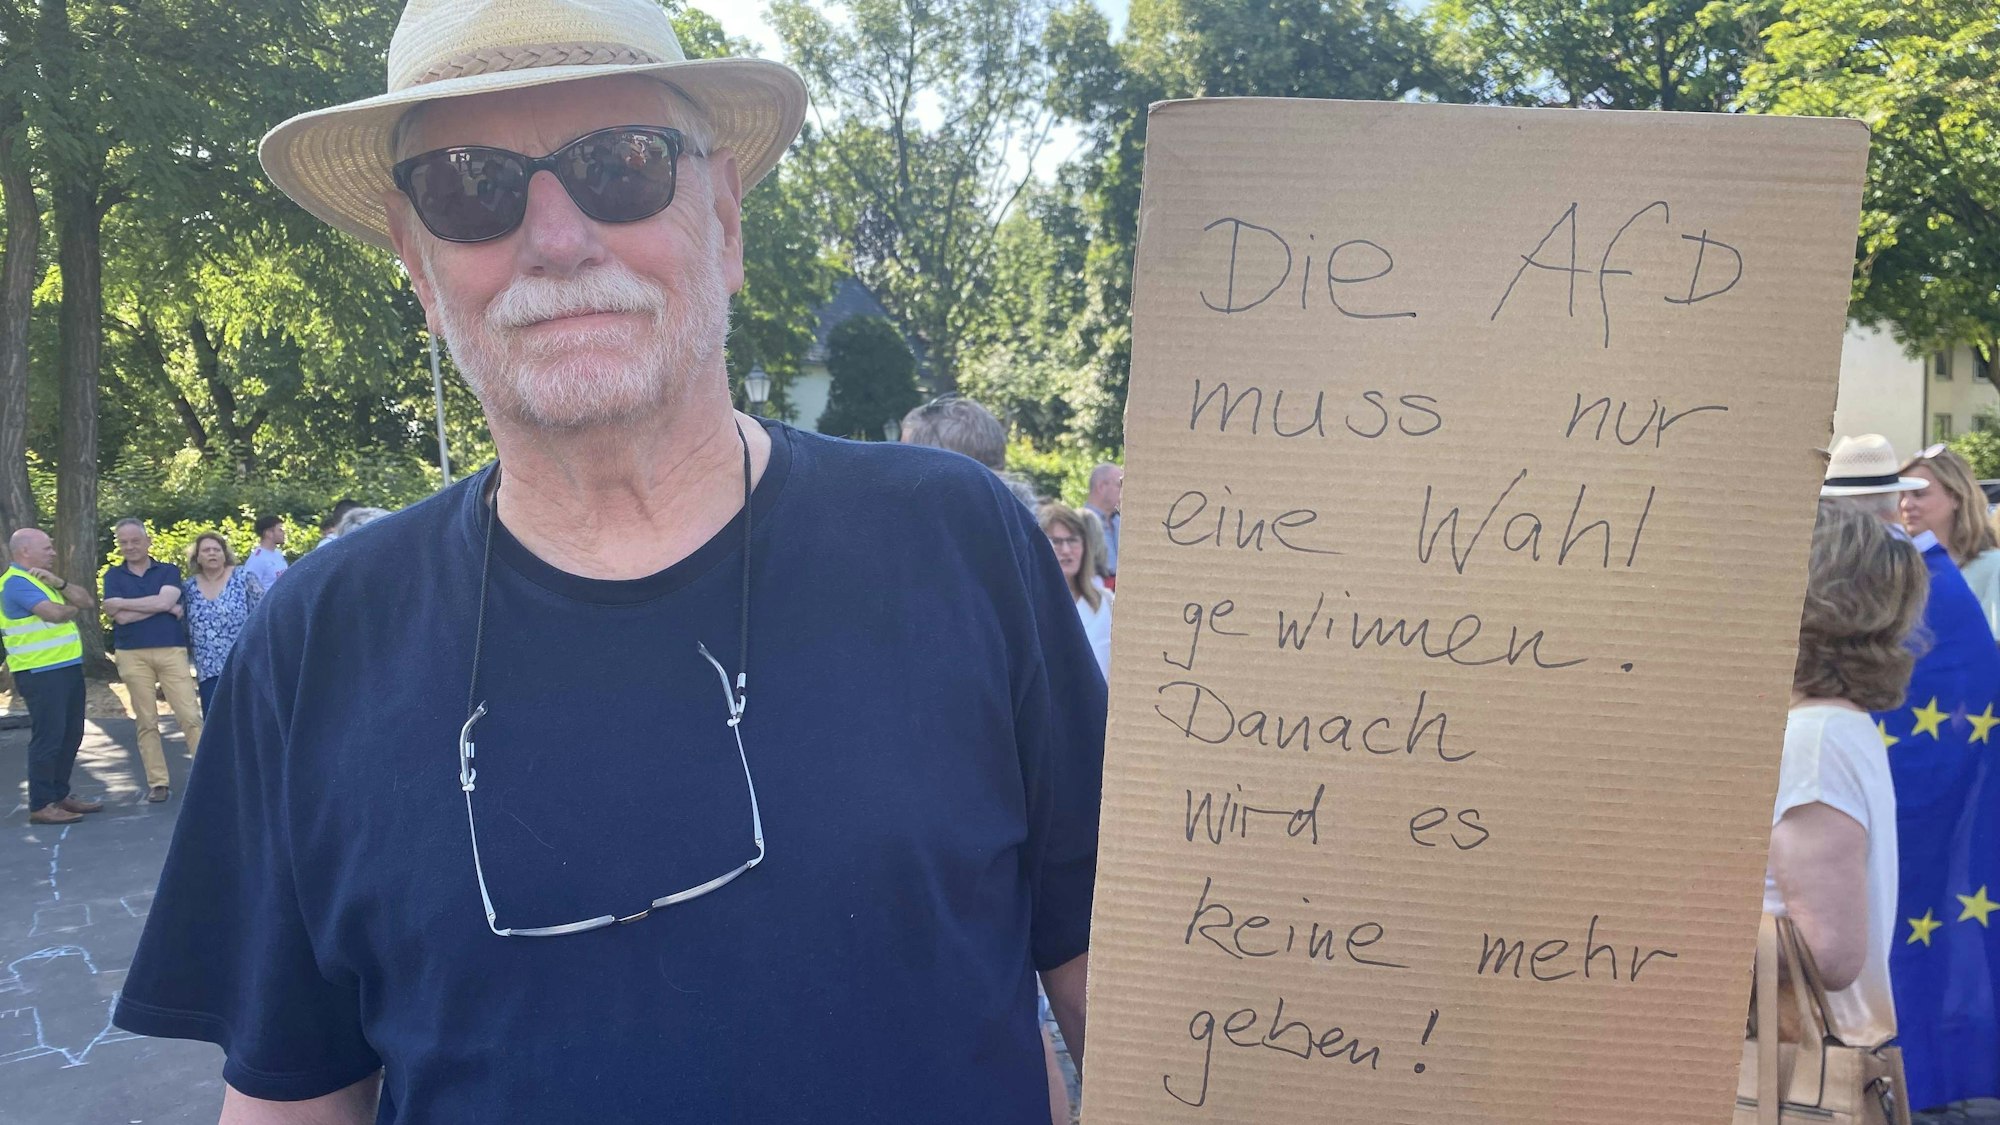 Die AfD
muss nur
eine Wahl
gewinnen.
Danach
wird es
keine mehr
geben!